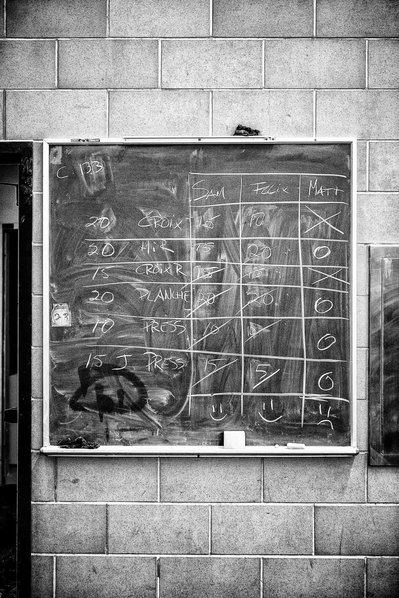 C 133
SAM FELIX MATT
20 CROIX 15 10 X
20 MiR 15 20 0
15 CROIX R X
20 PLANCHE 20 20 0
10 PRESS 10 0
15 J PRESS 15 15 0